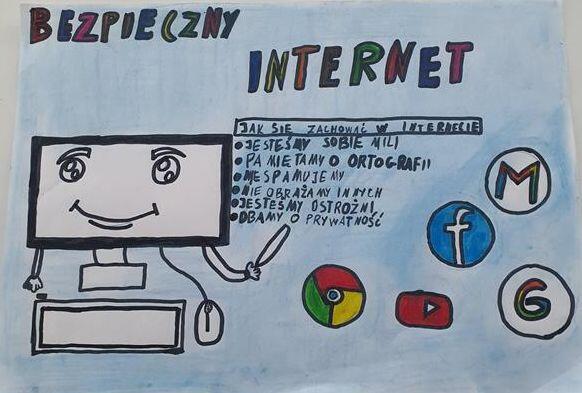 BEZPIECZNY
INTERNET
JAK SIĘ ZACHOWAĆ W INTERNECIE
• JESTEŚMY SOBIE MILI
• PAMIĘTAMY O ORTOGRAFII
• NIESPAMUJEMY
• NIE OBRAŻAMY INNYCH
• JESTEŚMY OSTROŻNI
• DBAMY O PRYWATNOŚĆ
M
f
G